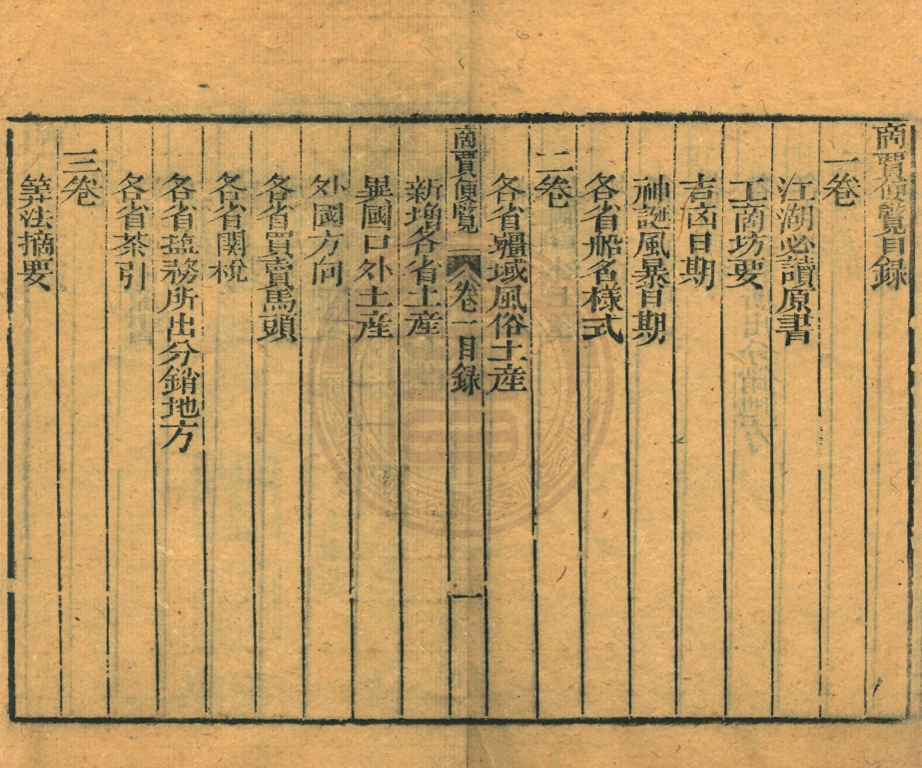 商賈便覽目録
一卷
江湖必讀原書
工商坊要
吉凶日期
神誕風暴日期
各省船名樣式
二卷
各省疆域風俗土産
商賈便覽 卷一目録 一
新增各省土産
異國口外土産
外國方向
各省買賣馬頭
各省関稅
各省塩務所出分銷地方
各省茶引
三卷
筭法摘要